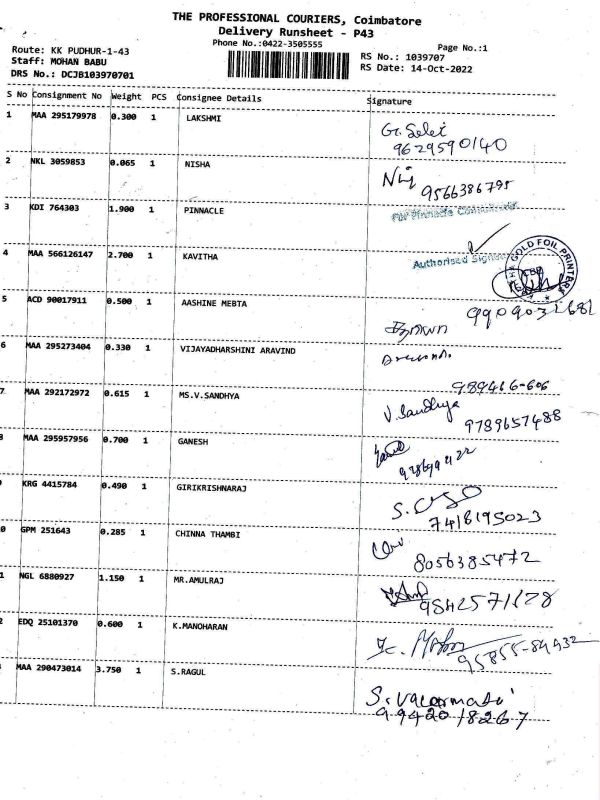 THE PROFESSIONAL COURIERS, Coimbatore
Delivery Runsheet - P43
Phone No.:0422-3505555
Page No.:1
Route: KK PUDHUR-1-43
Staff: MOHAN BABU
DRS No.: DCJB103970701
RS No.: 1039707
RS Date: 14-Oct-2022
S No Consignment No Weight PCS Consignee Details Signature
1 MAA 295179978 0.300 1 LAKSHMI
9629590140
2 NKL 3059853 0.065 1 NISHA
9566386795
3 KDI 764303 1.900 1 PINNACLE
For Pinnacle
Authorised
4 MAA 566126147 2.700 1 KAVITHA
GOLD FOIL PRINTERS
5 ACD 90017911 0.500 1 AASHINE MEBTA
6 MAA 295273404 0.330 1 VIJAYADHARSHINI ARAVIND
989466-606
7 MAA 292172972 0.615 1 MS.V.SANDHYA
V. Sandhya
9789657488
MAA 295957956 0.700 1 GANESH
KRG 4415784 0.490 1 GIRIKRISHNARAJ
7418195023
0 GPM 251643 0.285 1 CHINNA THAMBI
8056385472
1 NGL 6880927 1.150 1 MR.AMULRAJ
2 EDQ 25101370 0.600 1 K.MANOHARAN
95855-84932
MAA 290473014 3.750 1 S.RAGUL
9942018267